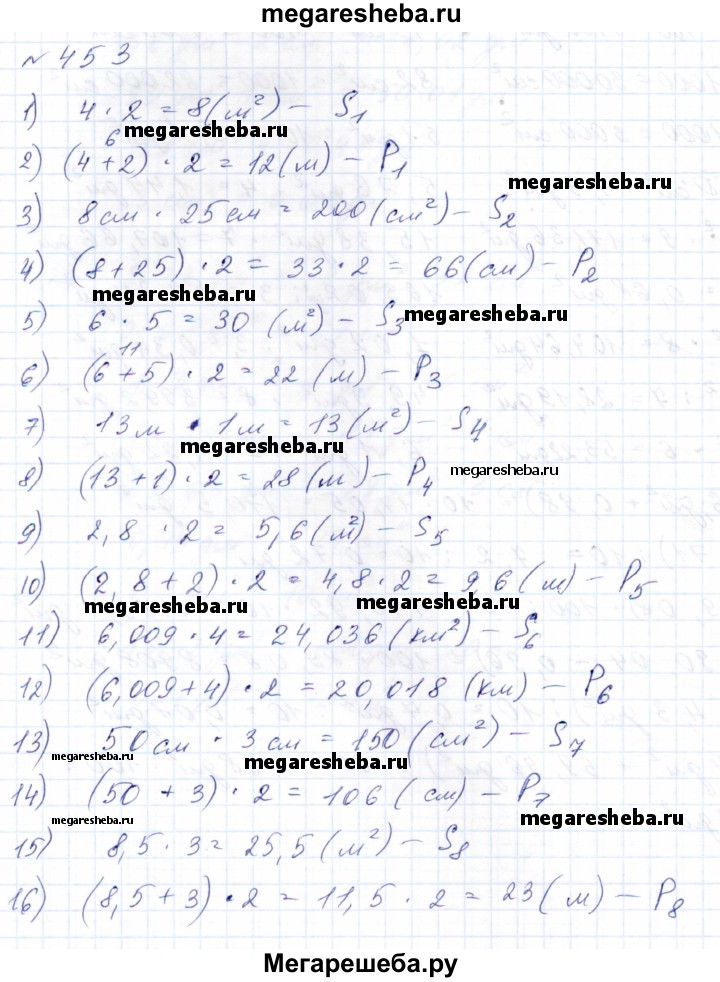 megaresheba.ru
№ 453
1) 4 · 2 = 8 (м²) – S₁
megaresheba.ru
6
2) (4 + 2) · 2 = 12 (м) – P₁
megaresheba.ru
3) 8 см · 25 см = 200 (см²) – S₂
4) (8 + 25) · 2 = 33 · 2 = 66 (см) – P₂
megaresheba.ru
5) 6 · 5 = 30 (м²) – S₃
megaresheba.ru
11
6) (6 + 5) · 2 = 22 (м) – P₃
7) 13 м · 1 м = 13 (м²) – S₄
megaresheba.ru
8) (13 + 1) · 2 = 28 (м) – P₄
megaresheba.ru
9) 2,8 · 2 = 5,6 (м²) – S₅
10) (2,8 + 2) · 2 = 4,8 · 2 = 9 6 (м) – P₅
megaresheba.ru megaresheba.ru
11) 6,009 · 4 = 24,036 (км²) – S₆
12) (6,009 + 4) · 2 = 20,018 (км) – P₆
13) 50 см · 3 см = 150 (см²) – S₇
megaresheba.ru megaresheba.ru
14) (50 + 3) · 2 = 106 (см) – P₇
megaresheba.ru megaresheba.ru
15) 8,5 · 3 = 25,5 (м²) – S₈
16) (8,5 + 3) · 2 = 11,5 · 2 = 23 (м) – P₈
Мегарешеба.ру